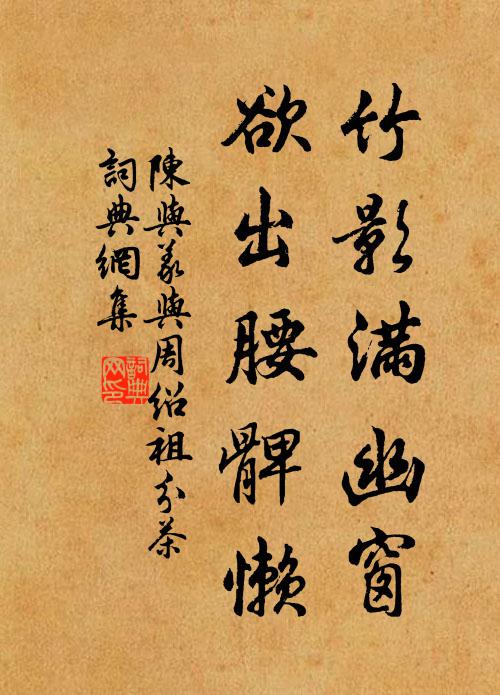 竹影滿幽窗
欲出腰髀懶
陳與義與周紹祖分茶
詞典網集
詞典网印